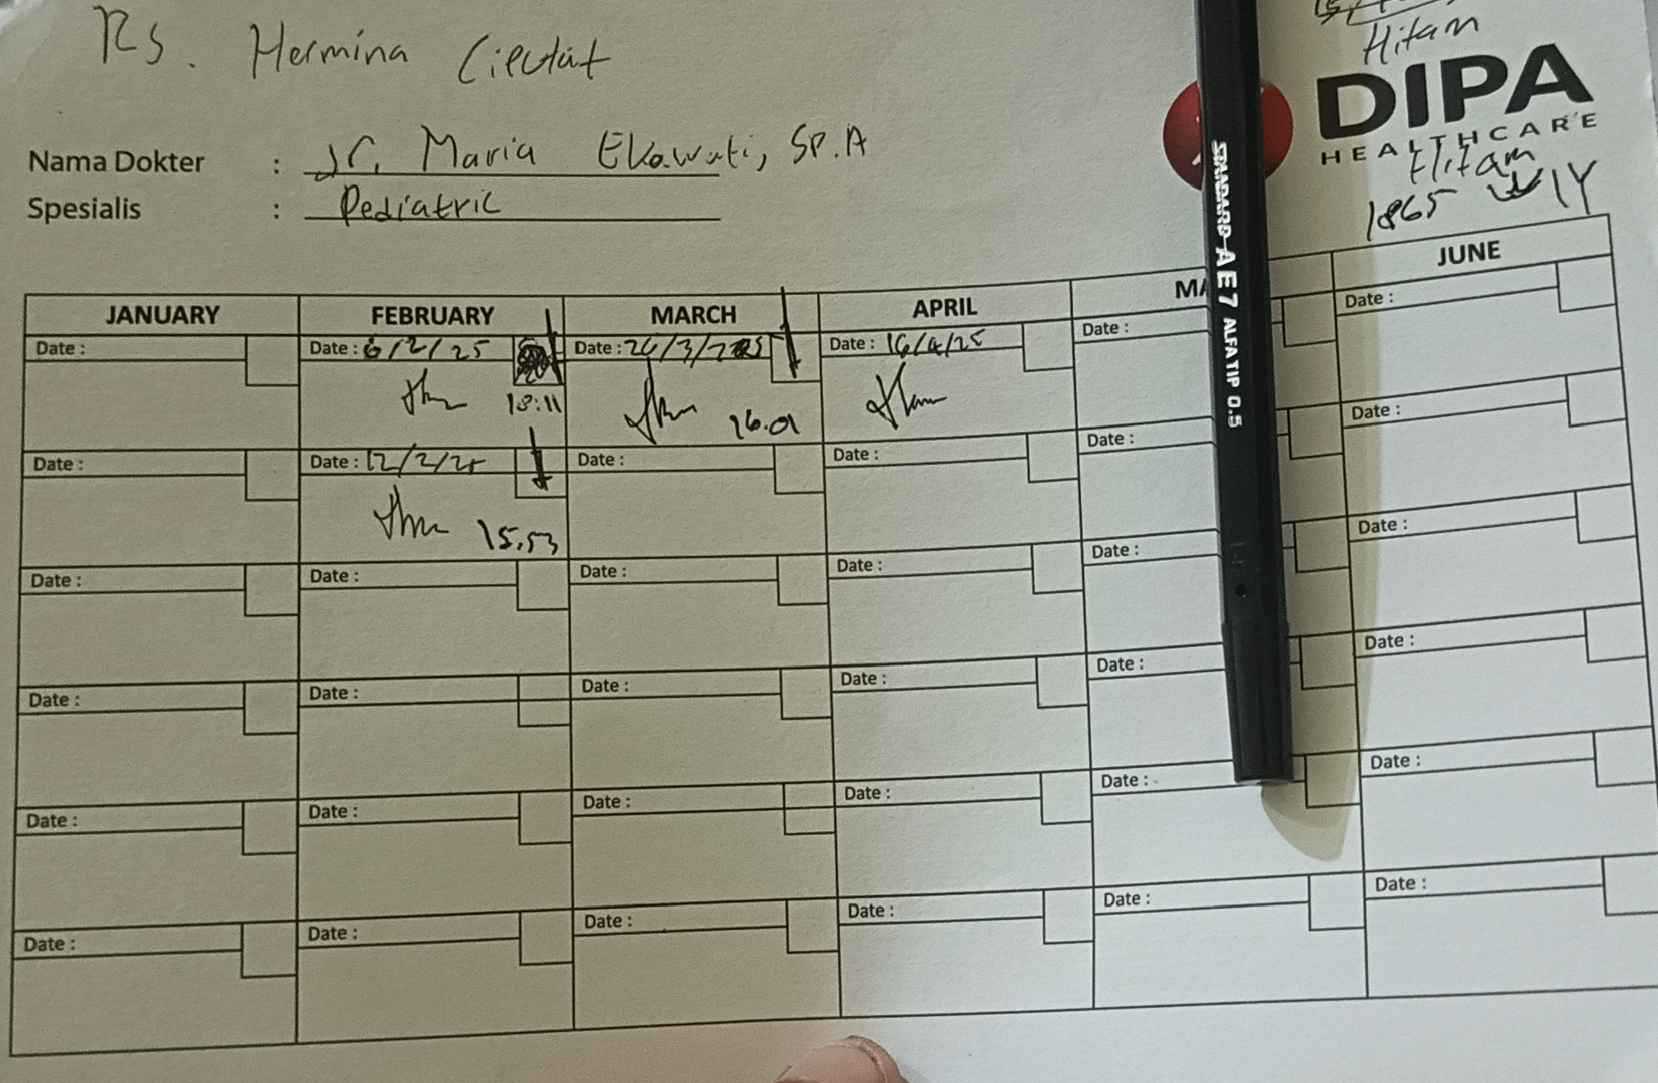 RS. Hermina Ciputat
Hitam
DIPA
HEALTHCARE
Hitam
1865
Nama Dokter : dr. Maria Ekawati, Sp.A
Spesialis : Pediatric
STANDARD AE7 ALFA TIP 0.5
JANUARY FEBRUARY MARCH APRIL MA JUNE
Date : Date : 6/2/25 Date : Date : 16/4/25 Date : Date :
18:11 16.01
Date : Date : 12/2/25 Date : Date : Date : Date :
15.53
Date : Date : Date : Date : Date : Date :
Date : Date : Date : Date : Date : Date :
Date : Date : Date : Date : Date : Date :
Date : Date : Date : Date : Date : Date :